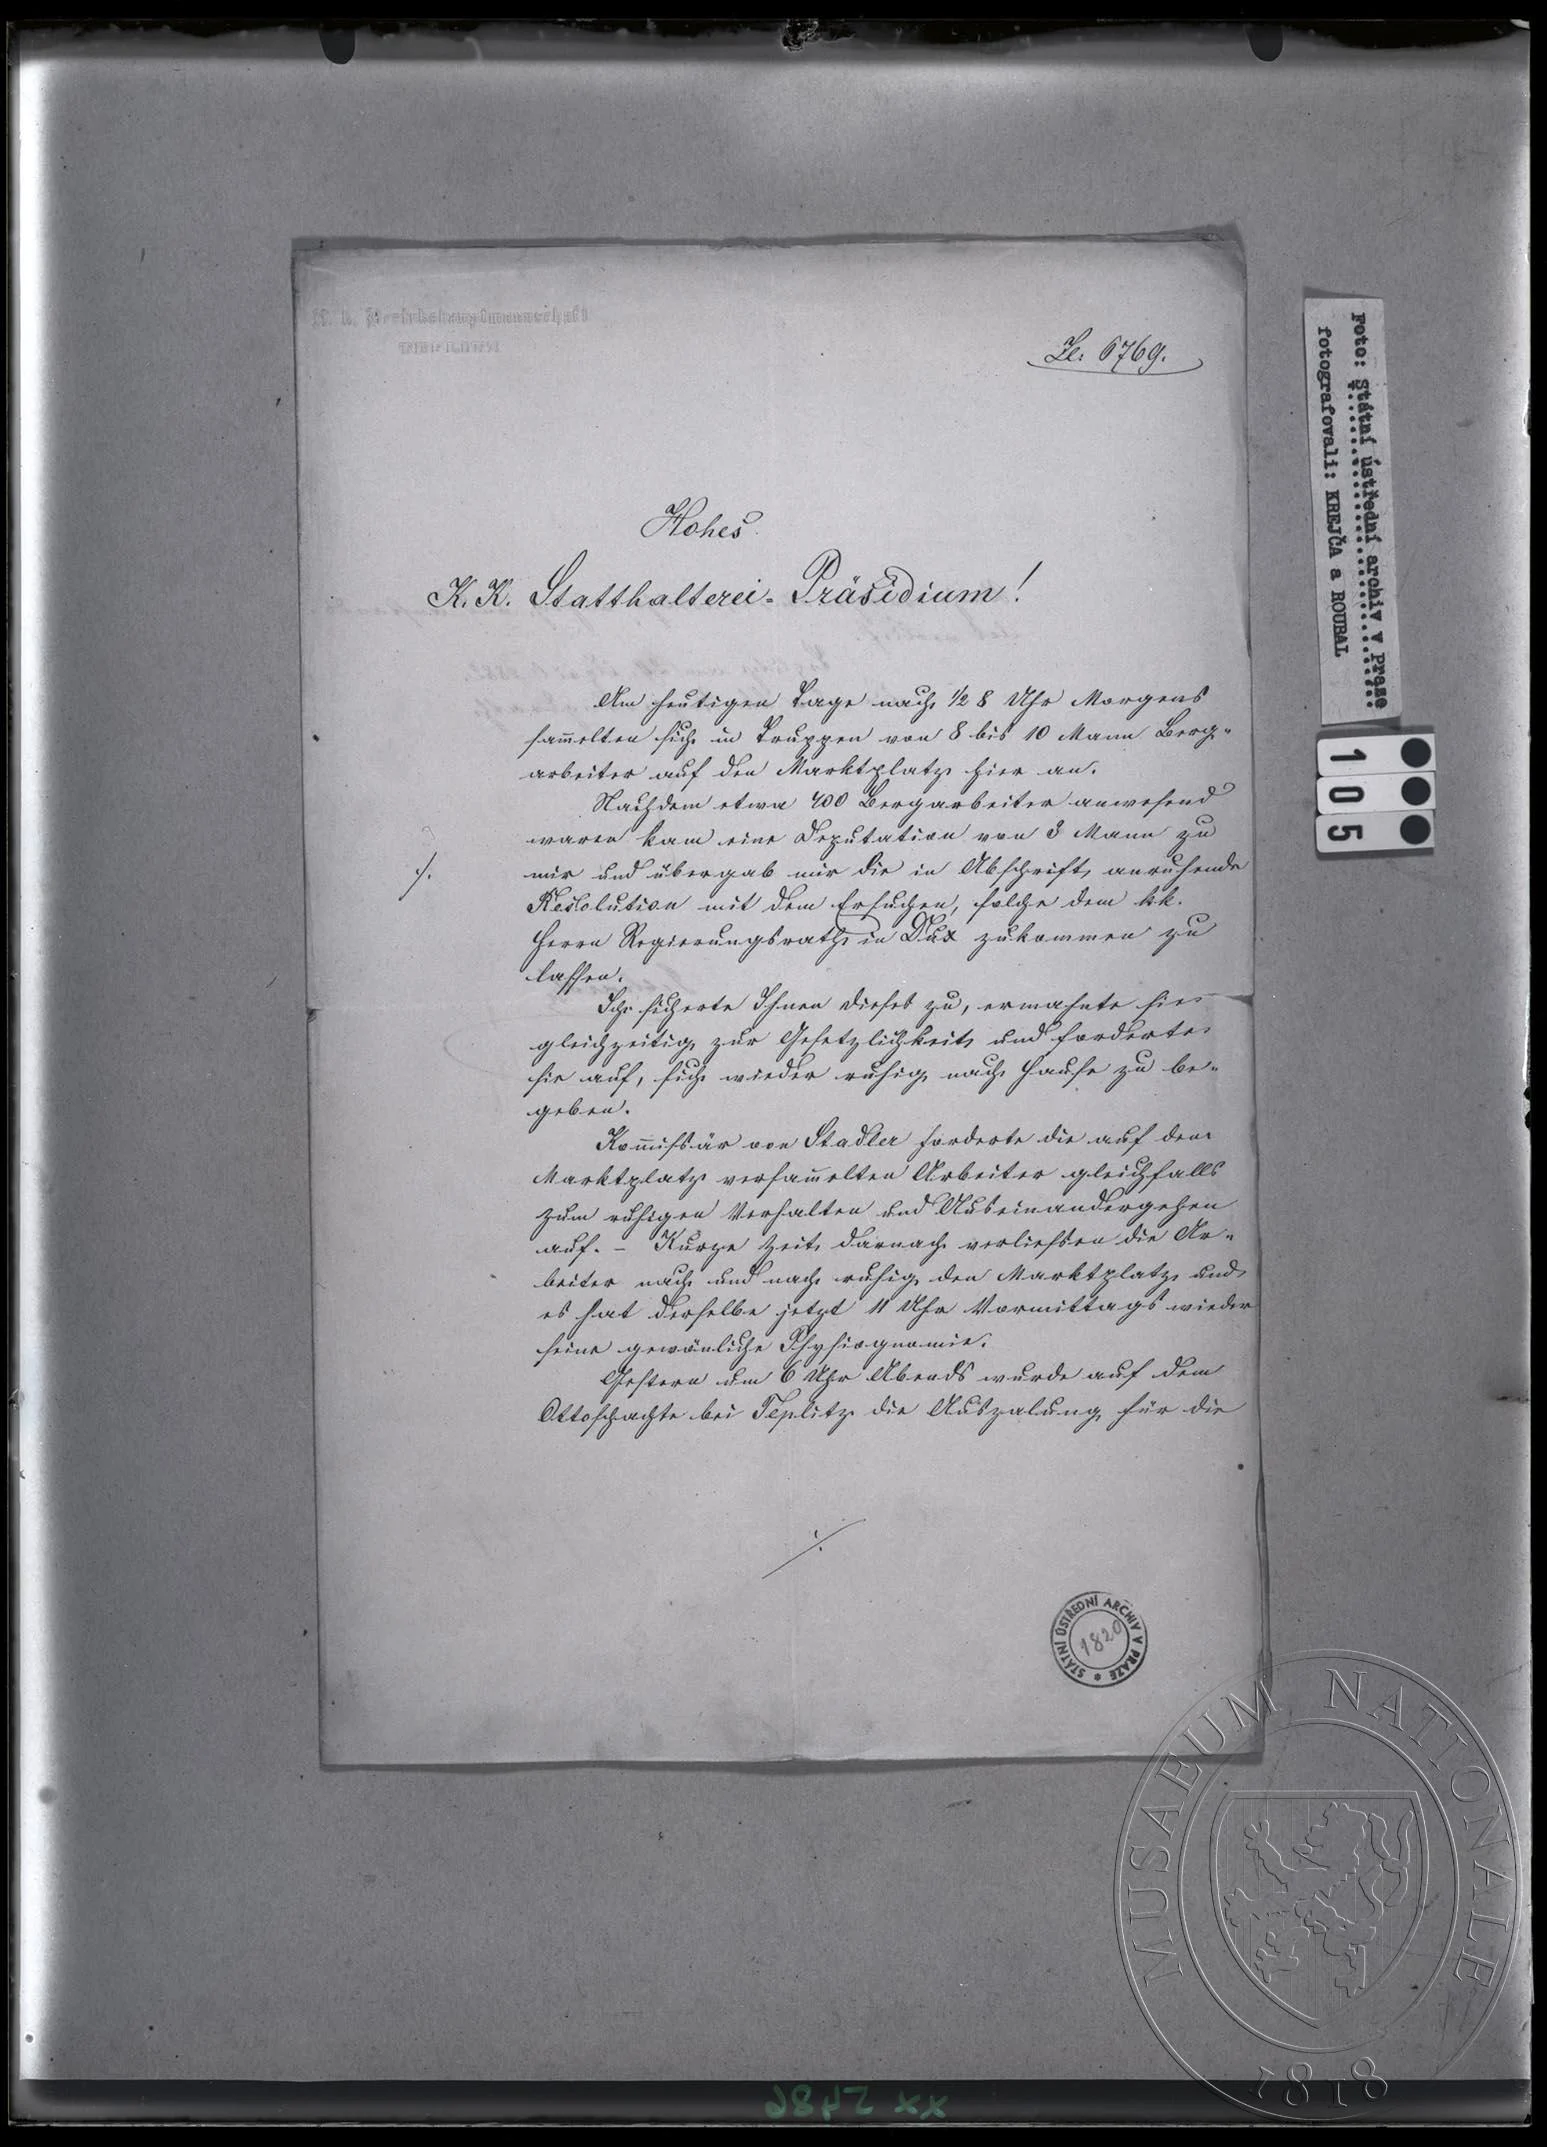 K. k. Bezirkshauptmannschaft
Zl: 6769.
Hohes
K. K. Statthalterei-Präsidium!
Am heutigen Tage nach 1/2 8 Uhr Morgens
sam̄elten sich in Truppen von 8 bis 10 Mann Berg-
arbeiter auf den Marktplatz hier an.
Nachdem etwa 400 Bergarbeiter anwesend
waren kam eine Deputation von 3 Mann zu
./. mir und übergab mir die in Abschrift anruhende
Resolution mit dem Ersuchen, solche dem k.k.
Herrn Regierungsrath in Dux zukommen zu
lassen.
Ich sicherte Ihnen dieses zu, ermahnte sie
gleichzeitig zur Gesetzlichkeit und forderte
sie auf, sich wieder ruhig nach Hause zu be-
geben.
Kom̄issär von Stadler forderte die auf dem
Marktplatz versam̄elten Arbeiter gleichfalls
zum ruhigen Verhalten und Auseinandergehen
auf. – Kurze Zeit darnach verliessen die Ar-
beiter nach und nach ruhig den Marktplatz und
es hat derselbe jetzt 11 Uhr Vormittags wieder
seine gewönliche Physiognomie.
Gestern um 6 Uhr Abends wurde auf dem
Ottoschachte bei Teplitz die Auszalung für die
./.
STÁTNÍ ÚSTŘEDNÍ ARCHIV V PRAZE
1820
Foto: Státní ústřední archiv v Praze
fotografovali: KREJČA a ROUBAL
105
MUSAEUM NATIONALE
1818